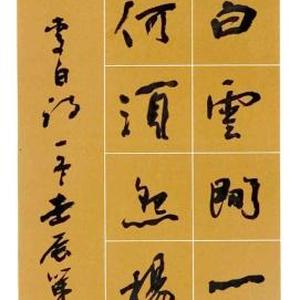 白雲間一
何須怨楊
李白詩一首壬辰